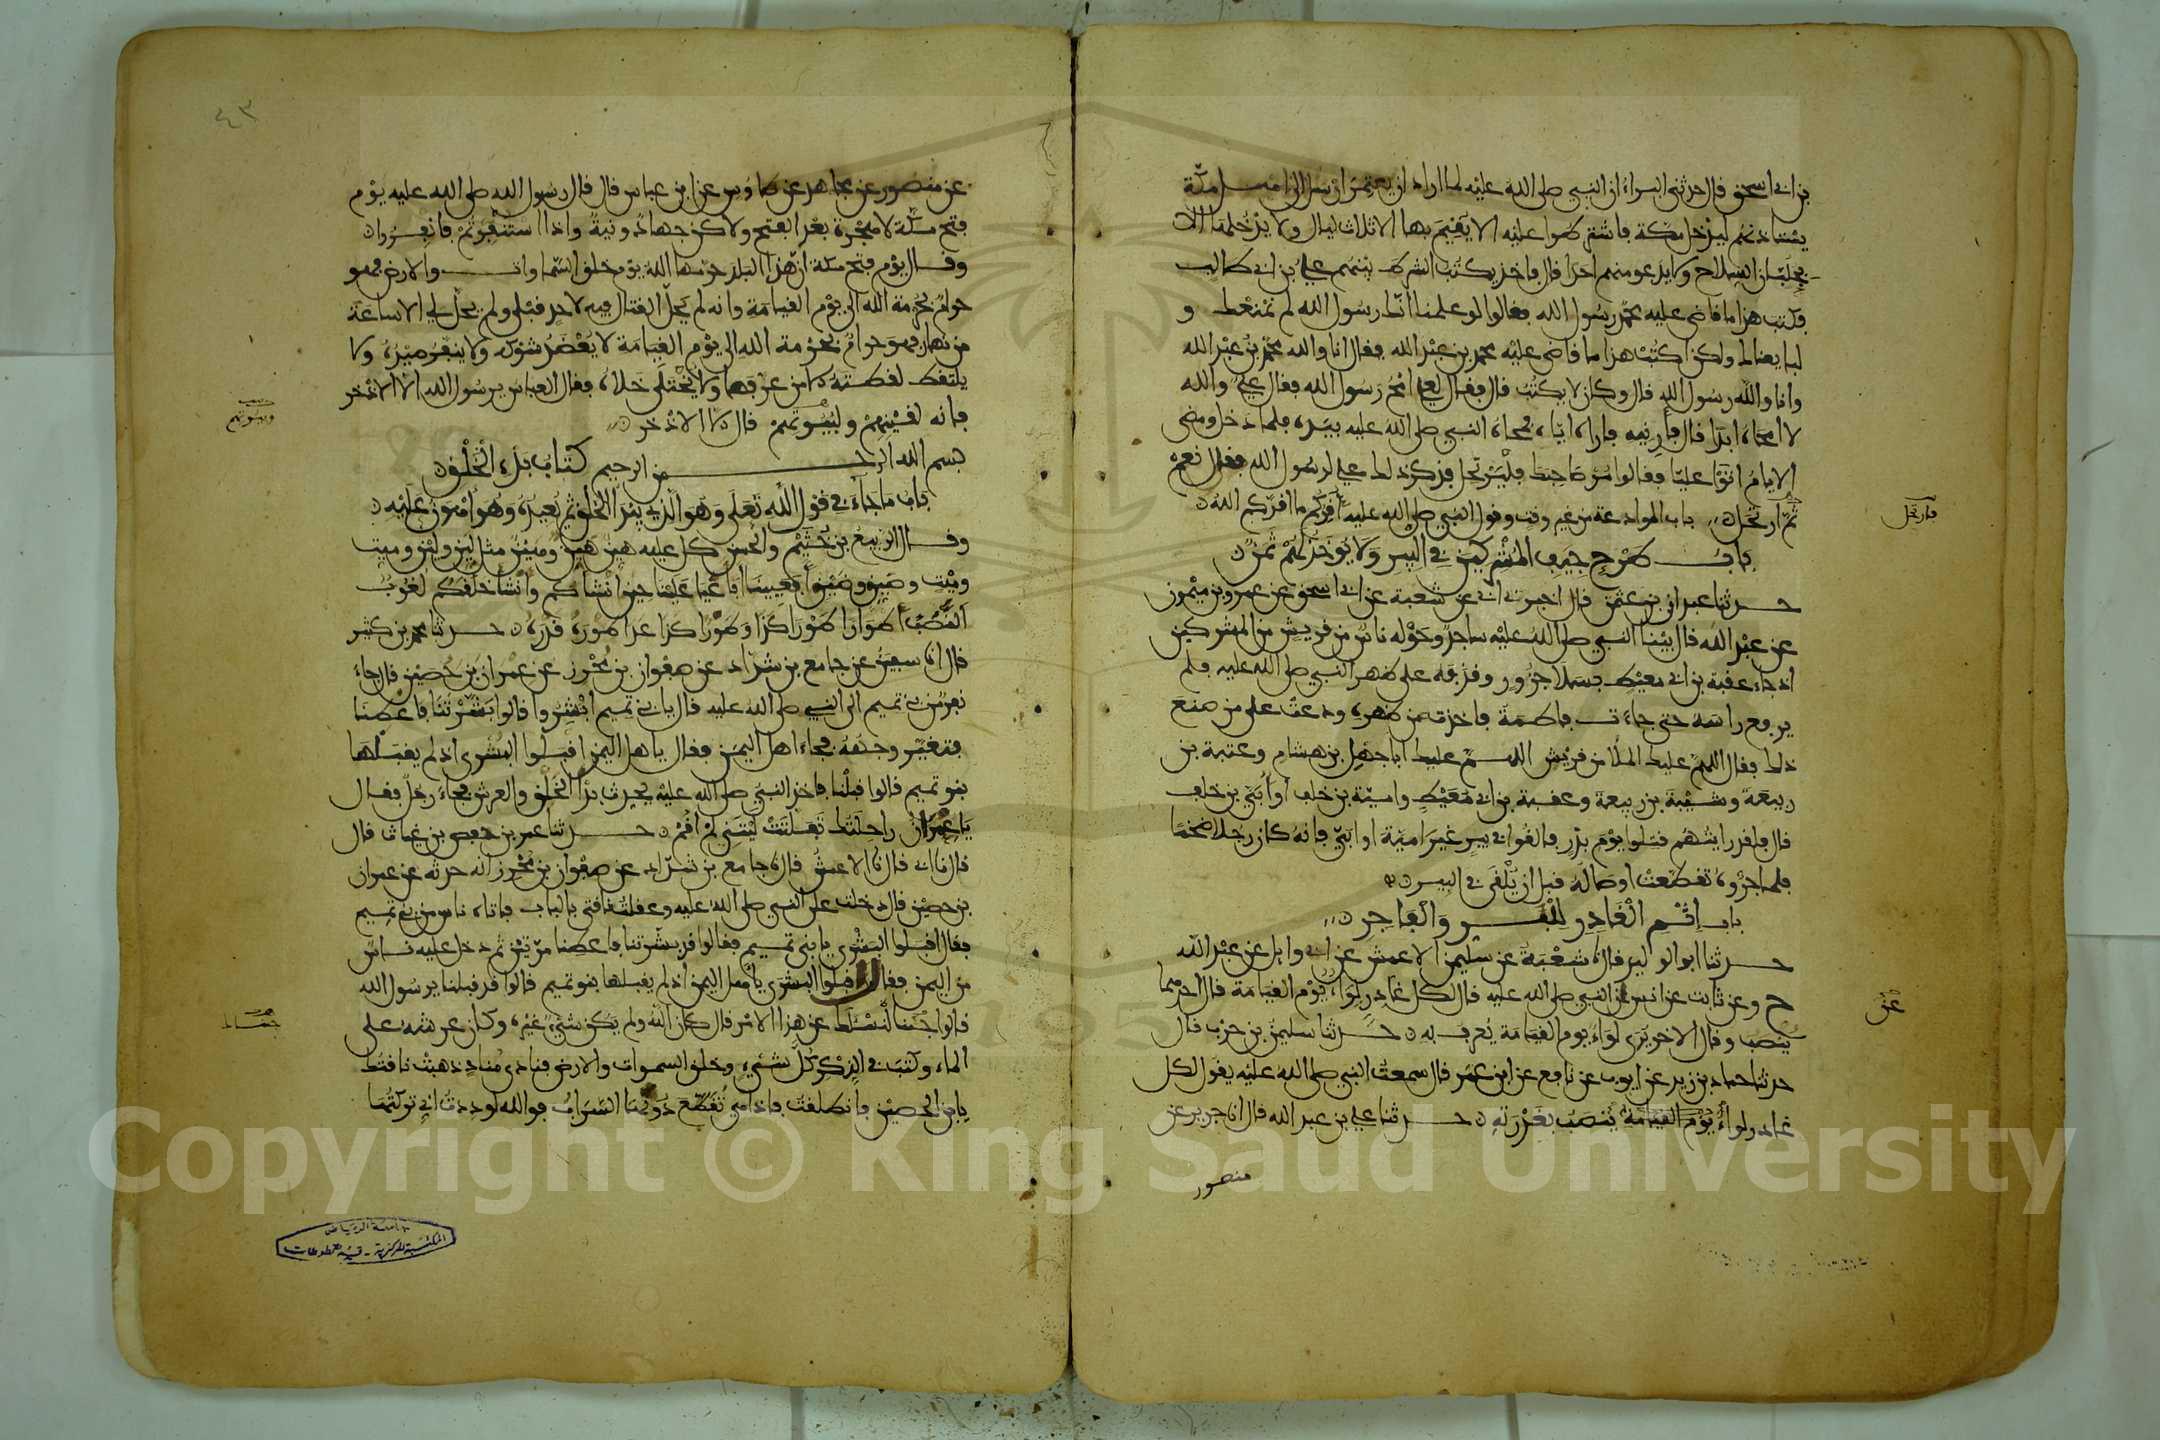 بن ابي اسحق قال حدثني البراء ان النبي صلى الله عليه لما اراد ان يعتمر ارسل الى اهل مكة
يستاذنهم ليدخل مكة فاشترطوا عليه الا يقيم بها الا ثلاث ليال ولا يدخلها الا
بجلبان السلاح ولا يدعو منهم احدا قال فاخذ يكتب الشرط بينهم علي بن ابي طالب
فكتب هذا ما قاضى عليه محمد رسول الله فقالوا لو علمنا انك رسول الله لم نمنعك و
لبايعناك ولكن اكتب هذا ما قاضى عليه محمد بن عبد الله فقال انا والله محمد بن عبد الله
وانا والله رسول الله قال وكان لا يكتب قال فقال لعلي امح رسول الله فقال علي والله
لا امحاه ابدا قال فارنيه فاراه اياه فمحاه النبي صلى الله عليه بيده فلما دخل ومضى
الايام اتوا عليا فقالوا مر صاحبك فليرتحل فذكر ذلك علي لرسول الله فقال نعم
ثم ارتحل باب الموادعة من غير وقت وقول النبي صلى الله عليه اقركم ما اقركم الله
باب طرح جيف المشركين في البير ولا يوخذ لهم ثمن
حدثنا عبدان بن عثمن قال اخبرني ابي عن شعبة عن ابي اسحق عن عمرو بن ميمون
عن عبد الله قال بينا النبي صلى الله عليه ساجد وحوله ناس من قريش من المشركين
اذ جاء عقبة بن ابي معيط بسلا جزور وقذفه على ظهر النبي صلى الله عليه فلم
يرفع راسه حتى جاءت فاطمة فاخذت من ظهره ودعت على من صنع
ذلك فقال اللهم عليك الملا من قريش اللهم عليك ابا جهل بن هشام وعتبة بن
ربيعة وشيبة بن ربيعة وعقبة بن ابي معيط وامية بن خلف او ابي بن خلف
قال فلقد رايتهم قتلوا يوم بدر فالقوا في بير غير امية او ابي فانه كان رجلا ضخما
فلما جروه تقطعت اوصاله قبل ان يلقى في البير
باب اثم الغادر للبر والفاجر
حدثنا ابو الوليد قال شعبة عن سليمن الاعمش عن ابي وايل عن عبد الله
ح وعن ثابت عن انس عن النبي صلى الله عليه قال لكل غادر لواء يوم القيامة قال احدهما
ينصب وقال الاخر يرى لواء يوم القيامة يعرف به حدثنا سليمن بن حرب قال
حدثنا حماد بن زيد عن ايوب عن نافع عن ابن عمر قال سمعت النبي صلى الله عليه يقول لكل
غادر لواء يوم القيامة ينصب بغدرته حدثنا علي بن عبد الله قال انا جرير عن
منصور
فارتحل
عن
٤٣
عن منصور عن مجاهد عن طاوس عن ابن عباس قال قال رسول الله صلى الله عليه يوم
فتح مكة لا هجرة بعد الفتح ولاكن جهاد ونية واذا استنفرتم فانفروا
وقال يوم فتح مكة ان هذا البلد حرمها الله يوم خلق السماوات والارض فهو
حرام بحرمة الله الى يوم القيامة وانه لم يحل القتال فيه لاحد قبلي ولم يحل لي الا ساعة
من نهار فهو حرام بحرمة الله الى يوم القيامة لا يعضد شوكه ولا ينفر صيده ولا
يلتقط لقطته الا من عرفها ولا يختلى خلاه فقال العباس يرسول الله الا الاذخر
فانه لقينهم ولبيوتهم قال الا الاذخر
بسم الله الرحمن الرحيم كتاب بدء الخلق
باب ما جاء في قول الله تعلى وهو الذي يبدا الخلق ثم يعيده وهو اهون عليه
وقال الربيع بن خثيم والحسن كل عليه هين هين وهين مثل لين ولين وميت
وميت وضيق وضيق افعيينا افاعيا علينا حين انشاكم وانشا خلقكم لغوب
النصب اطوارا طورا كذا وطورا كذا عدا طوره قدره حدثنا محمد بن كثير
قال انا سفين عن جامع بن شداد عن صفوان بن محرز عن عمران بن حصين قال جاء
نفر من بني تميم الى النبي صلى الله عليه قال يا بني تميم ابشروا قالوا بشرتنا فاعطنا
فتغير وجهه فجاء اهل اليمن فقال ياهل اليمن اقبلوا البشرى اذ لم يقبلها
بنو تميم قالوا قبلنا فاخذ النبي صلى الله عليه يحدث بدا الخلق والعرش فجاء رجل فقال
يا عمران راحلتك تفلتت ليتني لم اقم حدثنا عمر بن حفص بن غياث قال
نا ابي قال نا الاعمش قال نا جامع بن شداد عن صفوان بن محرز انه حدثه عن عمران
بن حصين قال دخلت على النبي صلى الله عليه وعقلت ناقتي بالباب فاتاه ناس من بني تميم
فقال اقبلوا البشرى يا بني تميم فقالوا قد بشرتنا فاعطنا مرتين ثم دخل عليه ناس
من اليمن فقال اقبلوا البشرى يا اهل اليمن اذ لم يقبلها بنو تميم قالوا قد قبلنا يرسول الله
قالوا جئنا نسئلك عن هذا الامر قال كان الله ولم يكن شيء غيره وكان عرشه على
الماء وكتب في الذكر كل شيء وخلق السموات والارض فنادى مناد ذهبت ناقتك
يا بن الحصين فانطلقت فاذا هي تقطع دونها السراب فوالله لوددت اني تركتها
وبيوتهم
جئناك
جامعة الرياض
المكتبة المركزية - قسم المخطوطات
Copyright © King Saud University